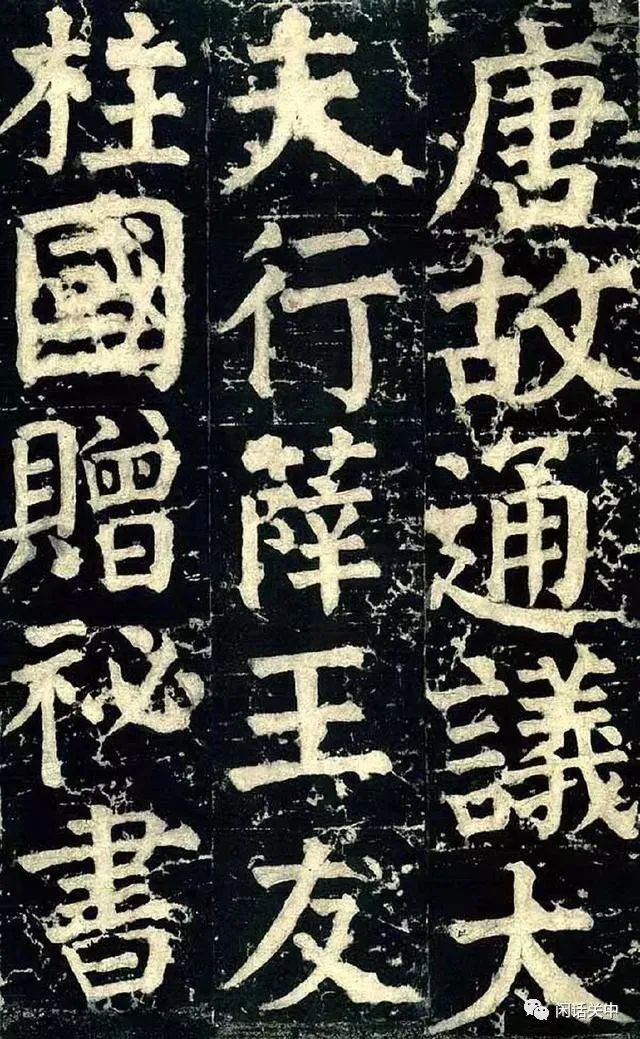 唐故通議大
夫行薛王友
柱國贈祕書
闲话关中